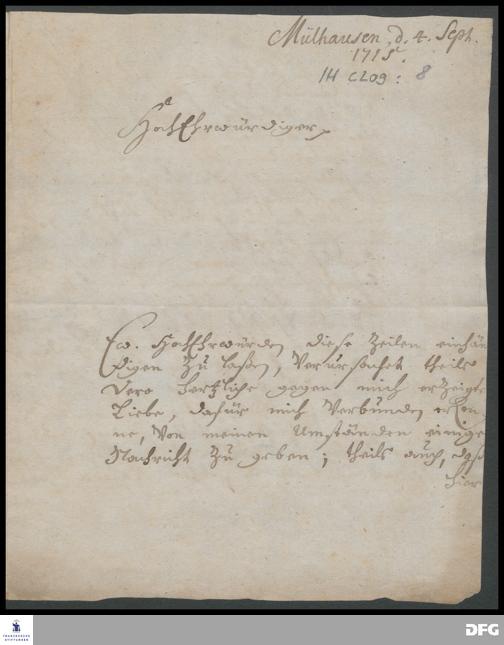 Mülhausen, d. 4. Sept.
1715.
1H C209: 8
HochEhrwürdiger,
Ew. HochEhrwürden diese Zeilen einhän
digen zu laßen, verursachet theils
dero hertzliche gegen mich erzeigte
Liebe, dafür mich verbunden erken
ne, von meinen Umständen einige
Nachricht zu geben; theils auch, daß
hier
FRANCKESCHE
STIFTUNGEN
DFG